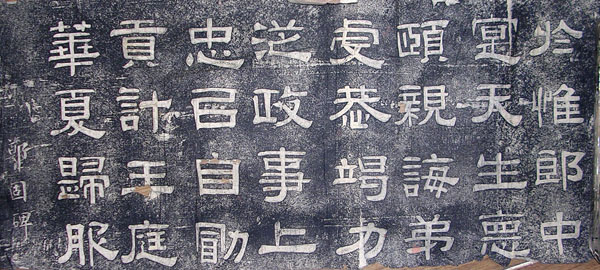 於惟郎中
寔天生悳
頤親誨弟
虔恭竭力
從政事上
忠㠯自勖
貢計王庭
華夏歸服
鄭固碑